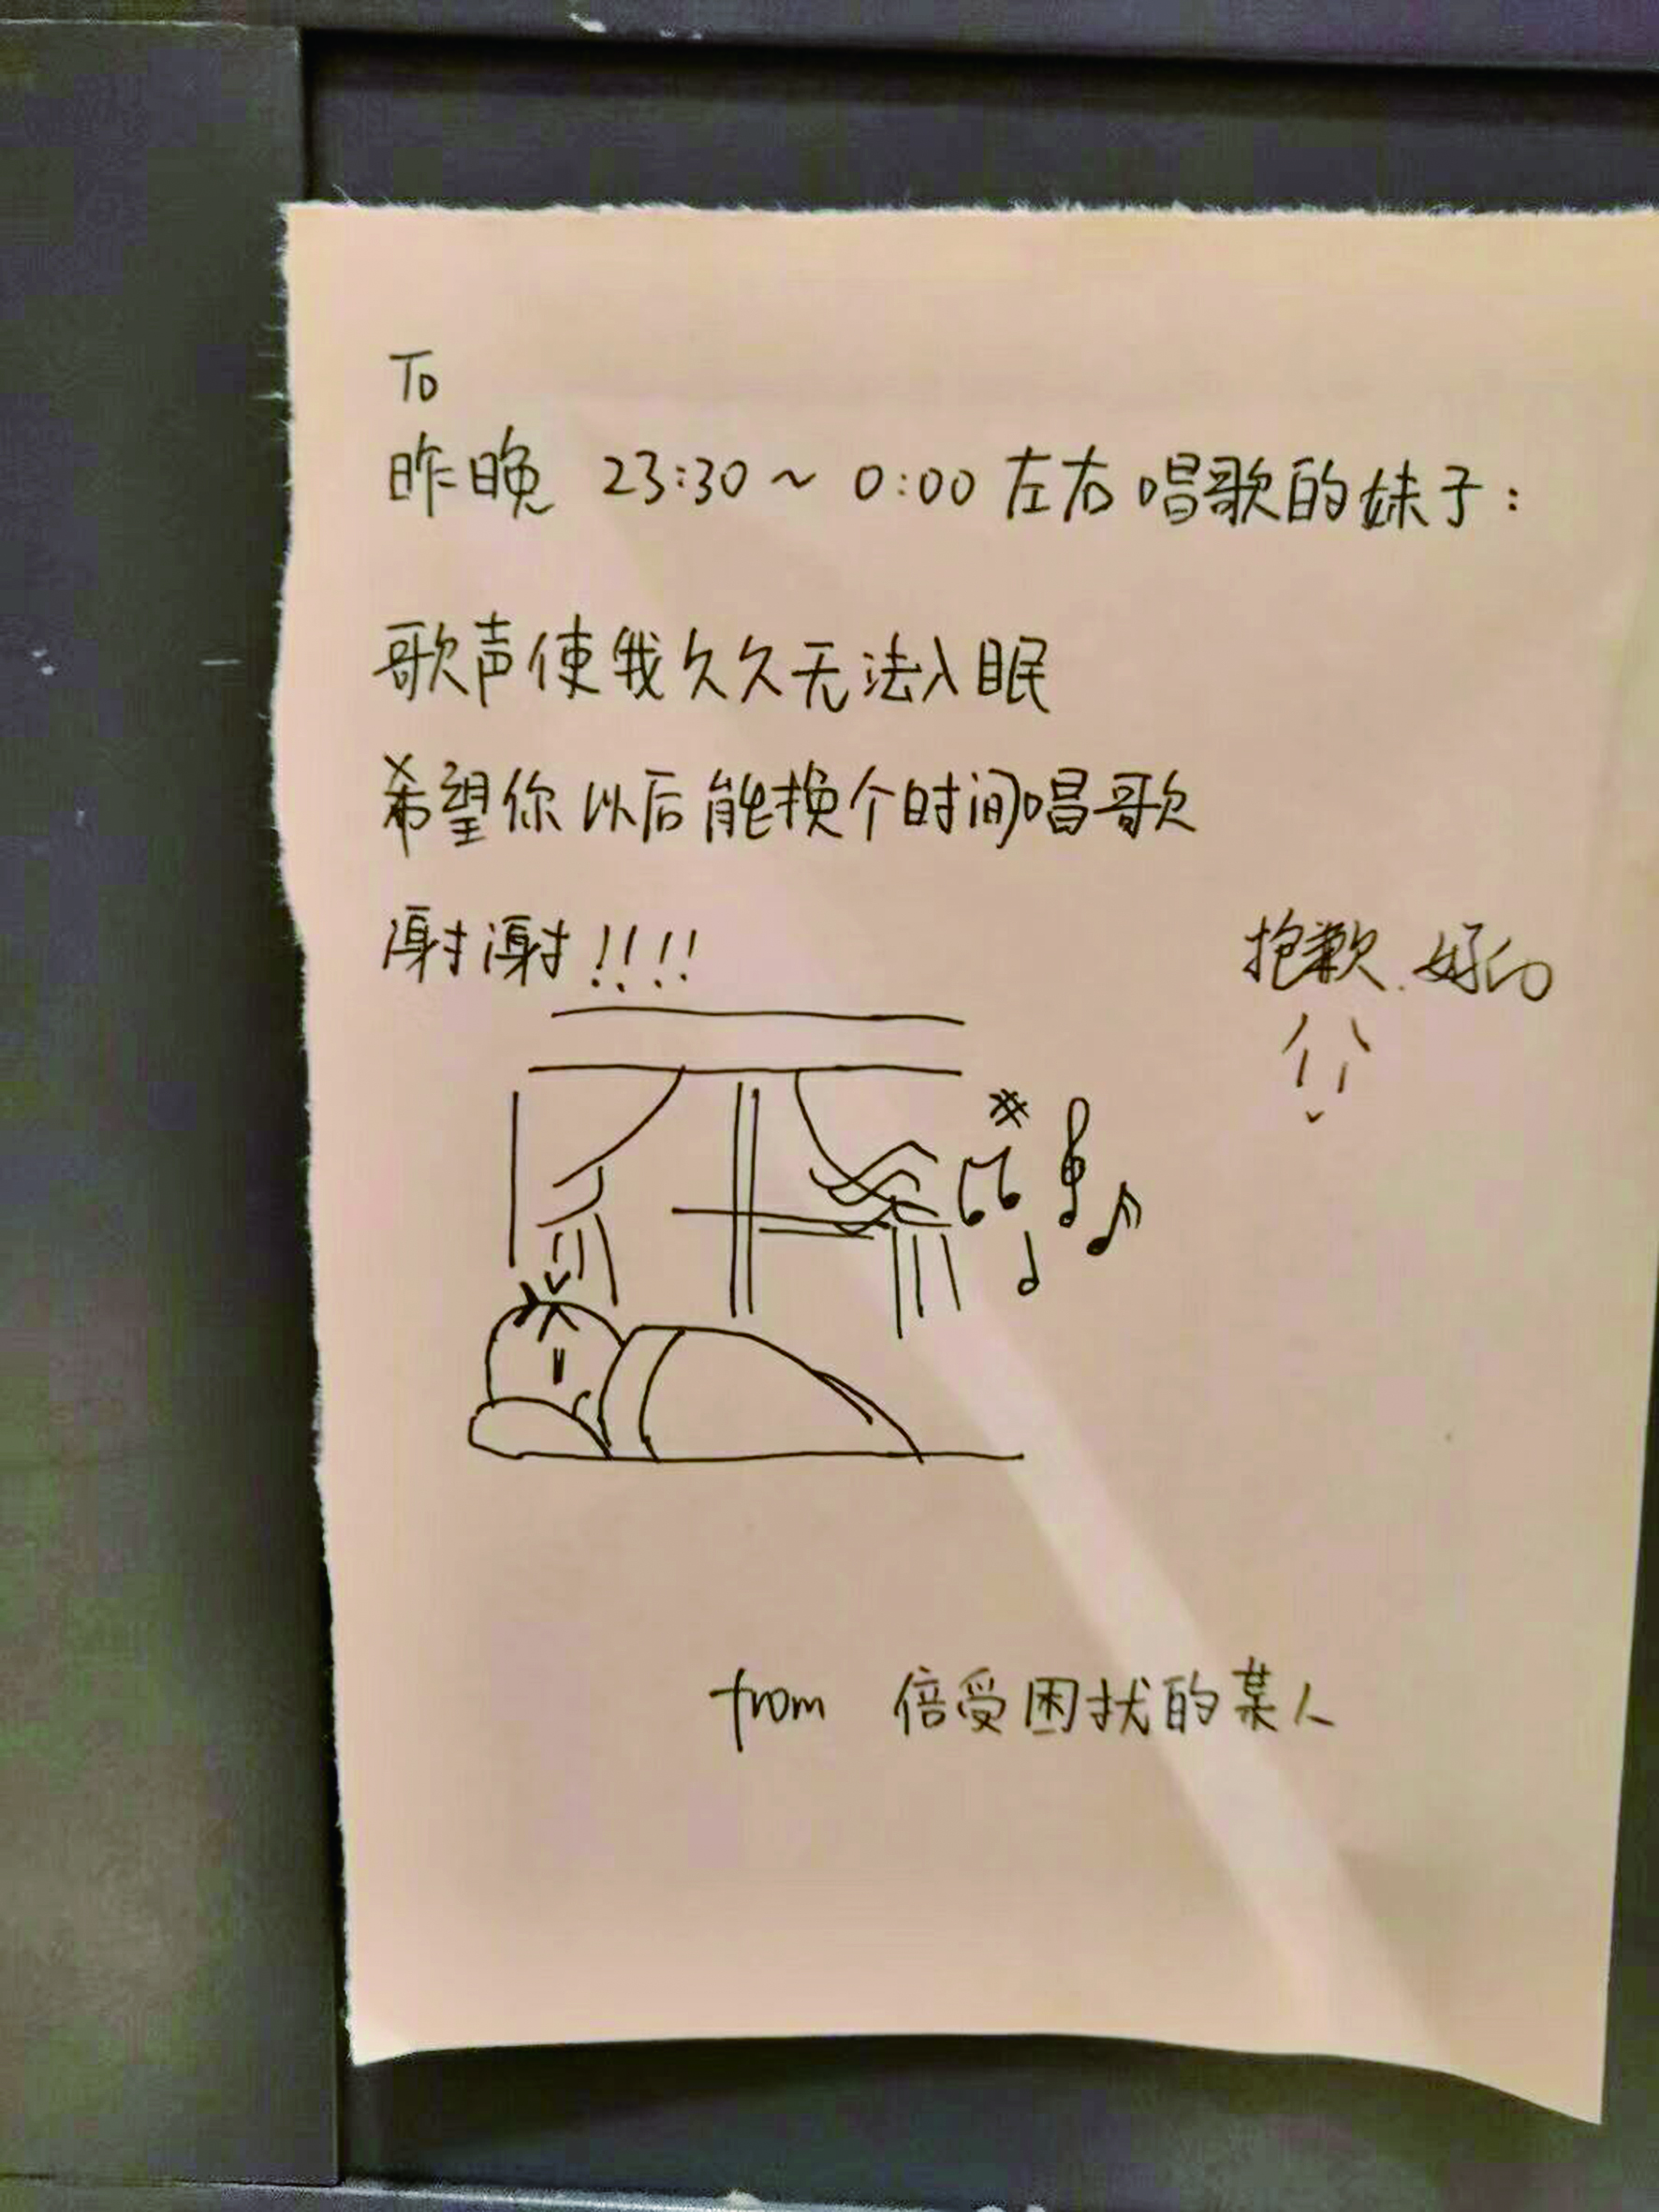 To
昨晚 23:30 ~ 0:00 左右唱歌的妹子：
歌声使我久久无法入眠
希望你以后能换个时间唱歌
谢谢!!!!
抱歉.好的
from 倍受困扰的某人